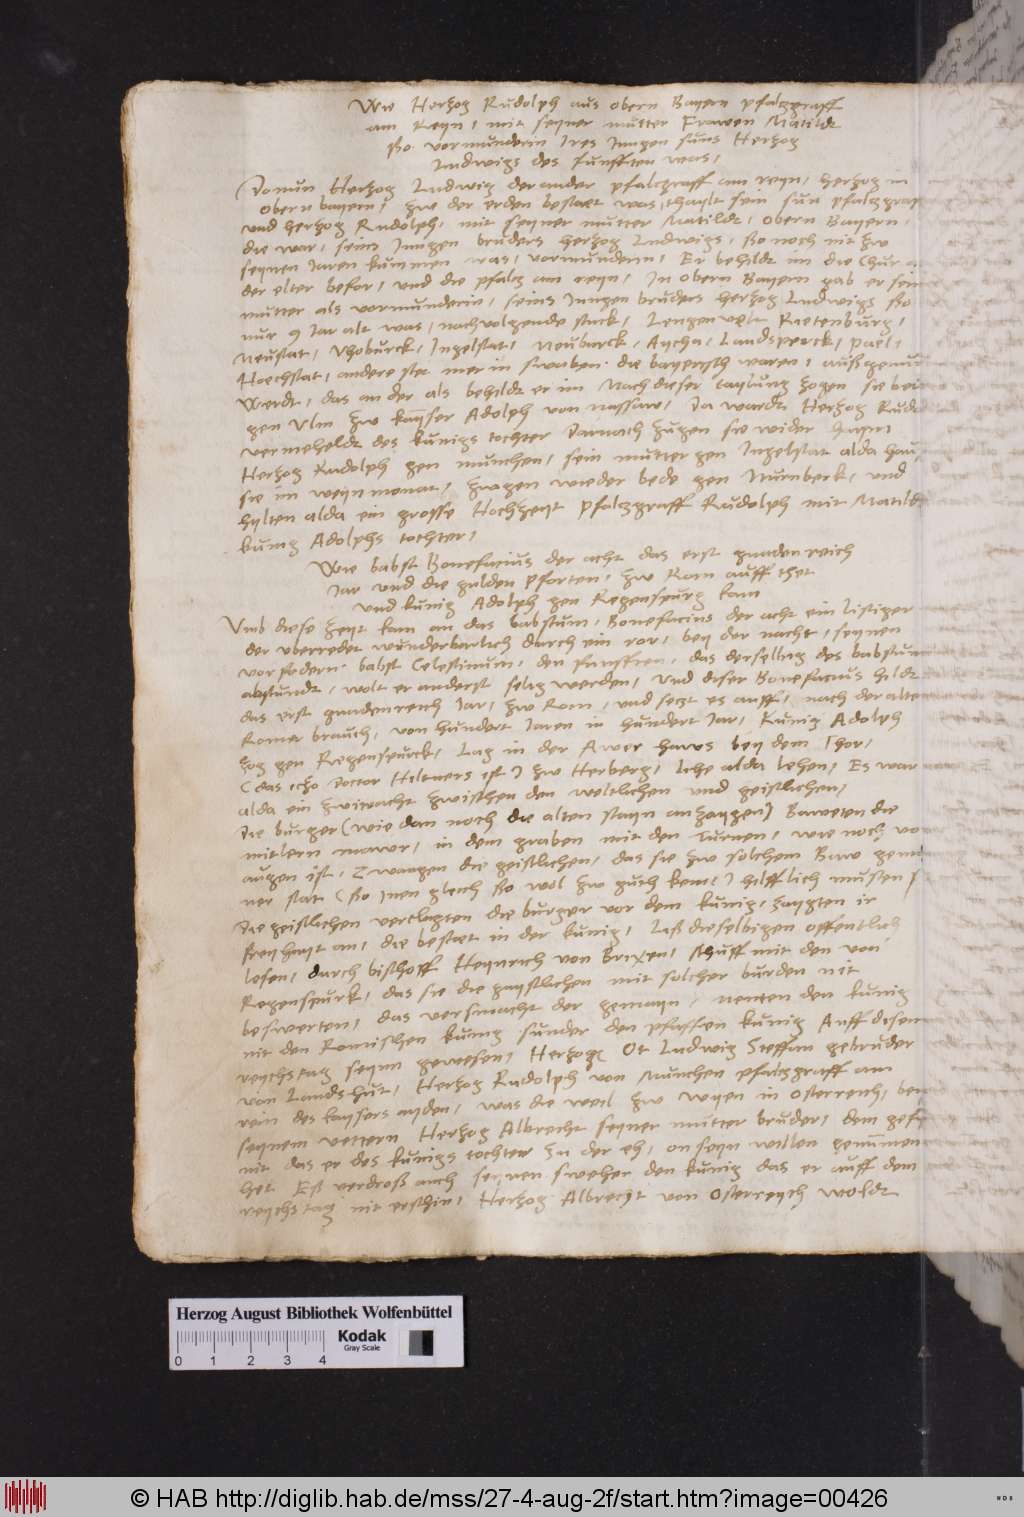 Wie Hertzog Rudolph aus obern Bayern pfaltzgraff
am Reyn, mit seyner mutter Frawen Matildt
so vormunderin Ires Jungen suns Hertzog
Ludwigs des funfften was,
Do nun Hertzog Ludwig der ander pfalczgraff am reyn, hertzog in
obern bayern, zw der erden bestaet was, thaylt sein sun pfalczgraff
und hertzog Rudolph, mit seyner mutter Matildt, obern Bayern,
die war, seins Jungen bruders hertzog Ludwigs, so noch nit zw
seynen Jaren kummen was, vormunderin, Er behildt im die Chur
der elter befor, und die pfalcz am reyn, In obern Bayern gab er sein
mutter als vormunderin, seins Jungen bruders hertzog Ludwigs so
nur 9 Jar alt was, nachvolgende stuck, Lengenvelt Rietenburg,
Neustat, Vhoburck, Ingelstat, Neuburck, Aycha, Landsperck, Pael,
Hoechstat, andere stet mer in swaben die bayerisch waren, außgenum
Werdt, das ander als behildt er im Nach dieser taylung zogen sie bei
gen Ulm zw kayser Adolph von nassaw, Da wardt Hertzog Rudo
vermeheldt des kunigs tochter Darnach zugen sie wider haym
Hertzog Rudolph gen munchen, sein mutter gen Ingelstat alda hau
sie im weynmonat, zwgen wieder bede gen Nurnberk, und
hylten alda ein grosse Hochzeyt Pfalczgraff Rudolph mit Matild
kunig Adolphs tochter,
Wie babst Bonefacius der acht das erst gnadenreich
Jar und die gulden pforten, zw Rom auff thet
und kunig Adolph gen Regenspurg kam
Umb diese zeyt kam an das babstum, Bonefacius der acht ein listiger
der uberredet wunderbarlich durch ein ror, bey der nacht, seynen
vorfodern babst Celestinum, den funfften, das derselbig des babstum
abstundt, wolt er anderst selig werden, und diser Bonefacius hildt
das erst gnadenreich Jar, zw Rom, und seczt es auff, nach der alten
Romer brauch, von hundert Jaren in hundert Jar, Kunig Adolph
zog gen Regenspurck, Lag in der Awer haws bey dem Thor,
(das iczo Doctor Hiltners ist) zw Herberg, liche alda lehen, Es war
alda ein zwitracht zwischen den weltlichen und geistlichen,
Die burger (wie dan noch die alten stayn anzaygen) Baweten die
mitlern mawr, in dem graben mit den Turnen, wie noch vor
augen ist, Zwangen die geistlichen, das sie zw solchem Baw gemei
ner stat (so Inen gleich so wol zw guth kemt) hilfflich musten s
Die geistlichen verclagten die burger vor dem kunig, zaygten ir
freyhayt an, die bestaet in der kunig, Ließ dieselbigen offentlich
lesen, durch bischoff Heynrich von Brixen, schuff mit den von
Regenspurk, das sie die gaystlichen mit solcher burden nit
beswerten, das versmacht der gemayn, nenten den kunig
nit den Romischen kunig sunder den pfaffen kunig Auff disem
reychstag seynn gewesen, Hertzog Ot Ludwig Steffan gebruder
von Landshut, Hertzog Rudolph von Munchen pfalczgraff am
rein des kaysers ayden, was die weil zw Wyen in Osterreich, bei
seynem vettern Hertzog Albrecht seyner mutter bruder, dem gef
nit das er des kunigs tochter zu der eh, on seyn willen genummen
het Eß verdroß auch seynen sweher den kunig das er auff dem
reychstag nit erschin, Hertzog Albrecht von Osterreych woldt
Herzog August Bibliothek Wolfenbüttel
0 1 2 3 4
Kodak
Gray Scale
© HAB http://diglib.hab.de/mss/27-4-aug-2f/start.htm?image=00426